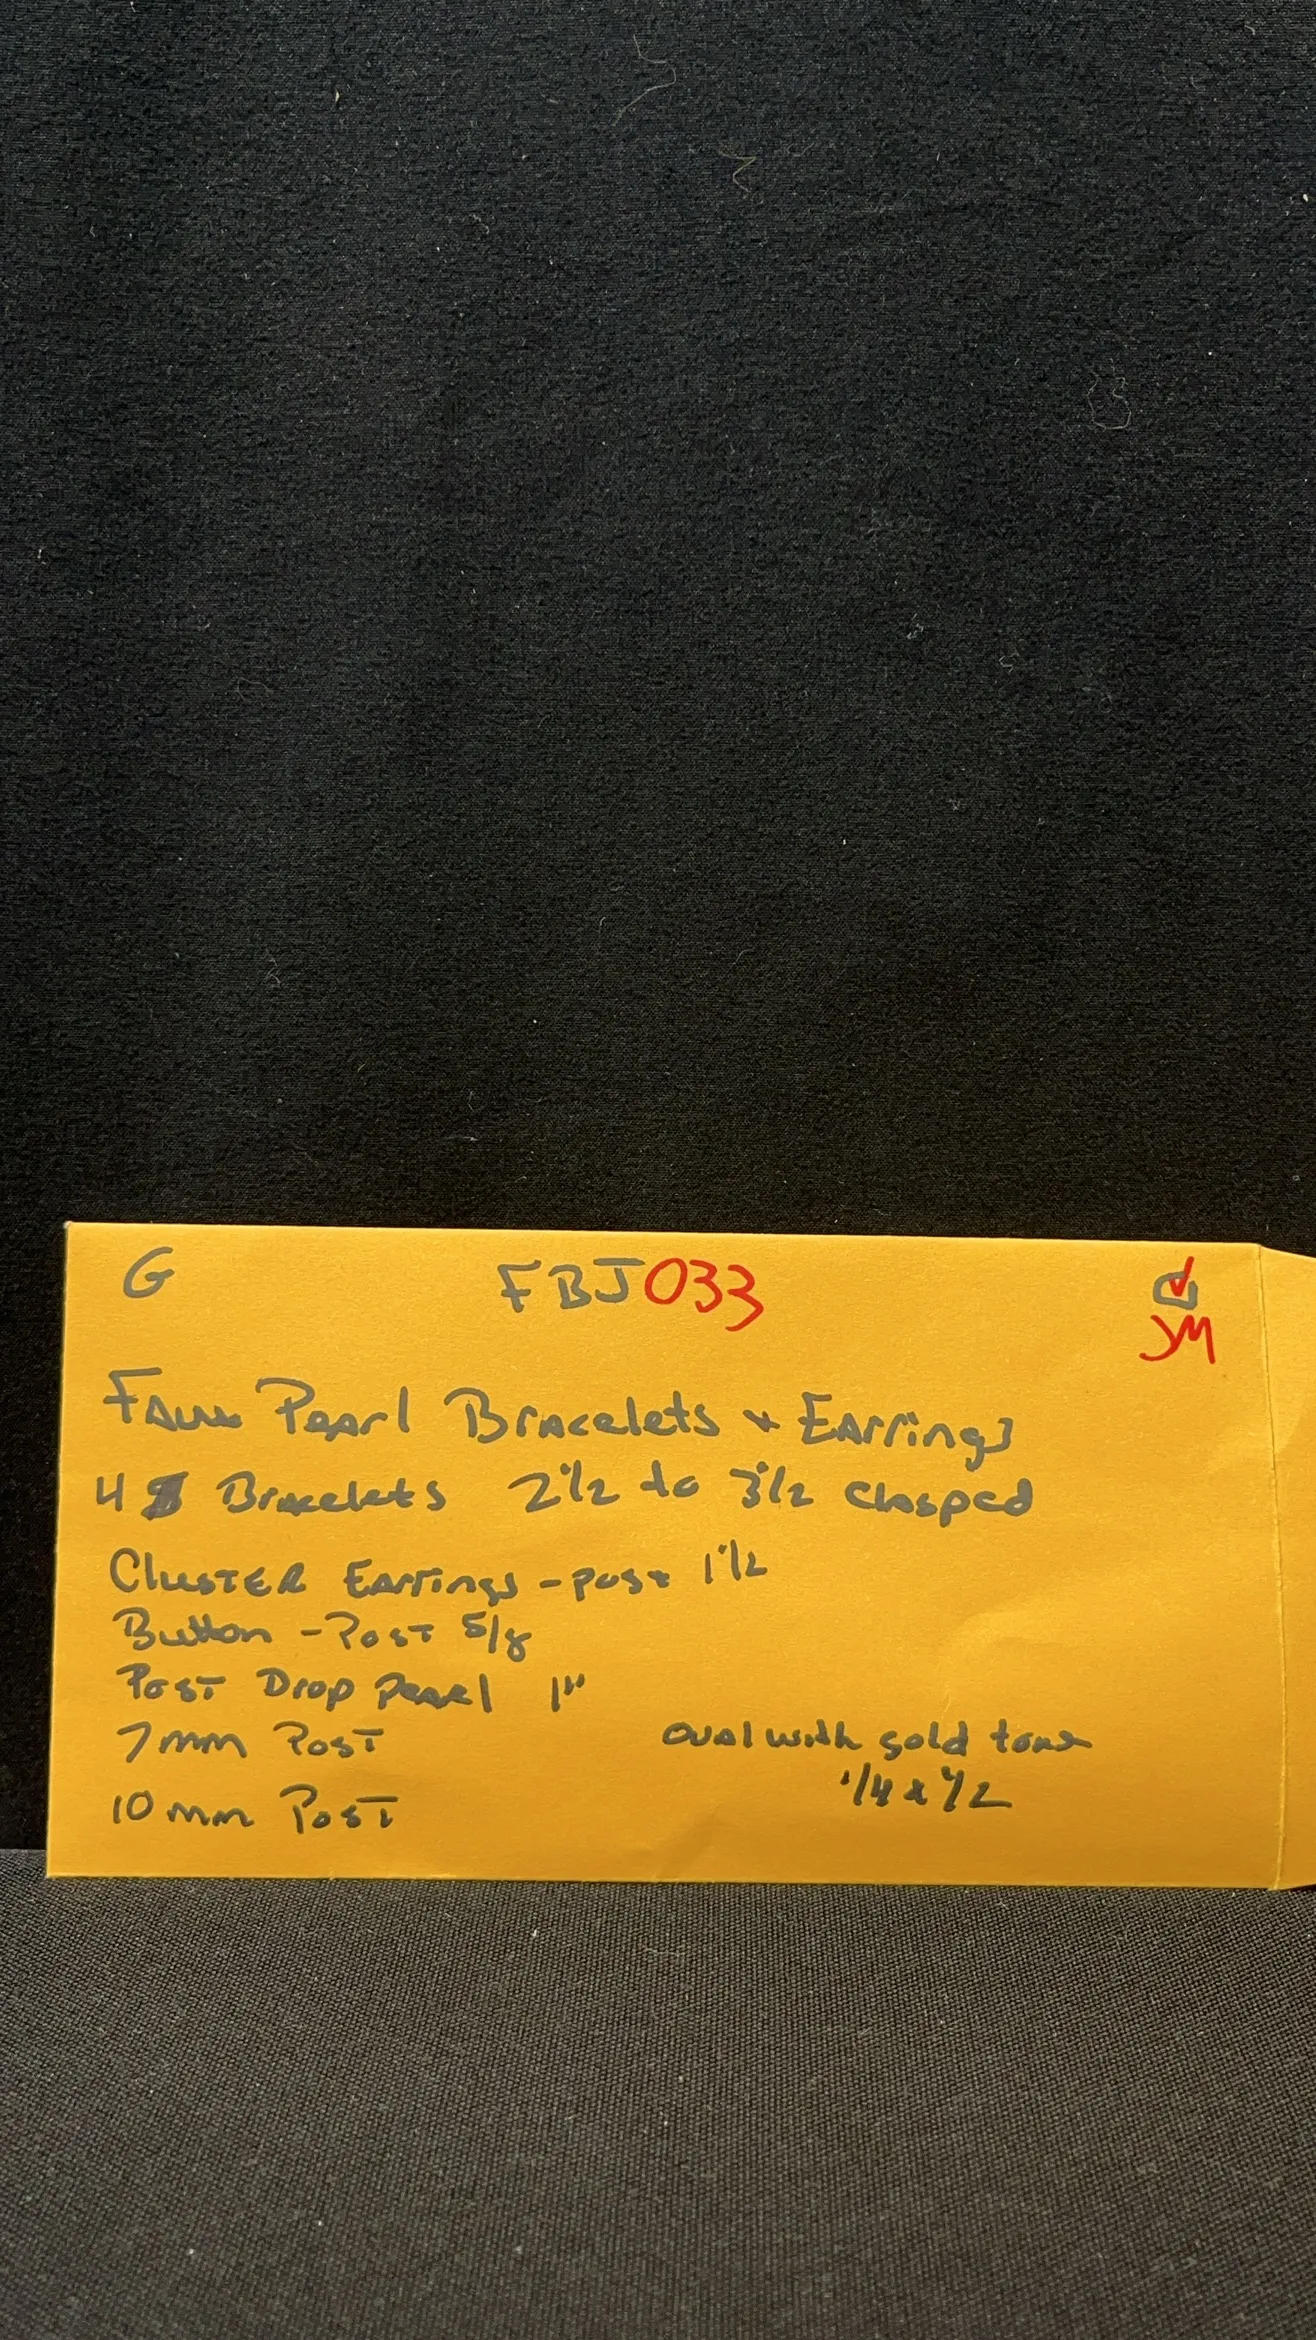 G FBJ033
JM
Faux Pearl Bracelets + Earrings
4 Bracelets 2 1/2 to 3 1/2 clasped
Cluster Earrings - post 1 1/2
Button - Post 5/8
Post Drop Pearl 1"
7mm Post
10mm Post
oval with gold tone
1/4 x 1/2